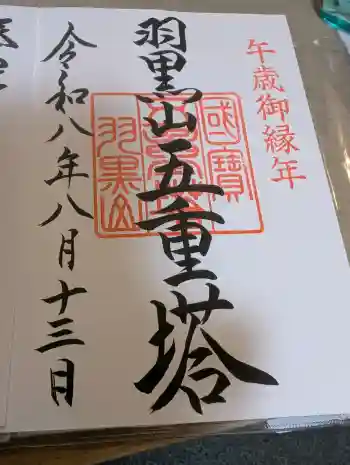 午歳御縁年
羽黒山五重塔
國寶
羽黒山
令和八年八月十三日